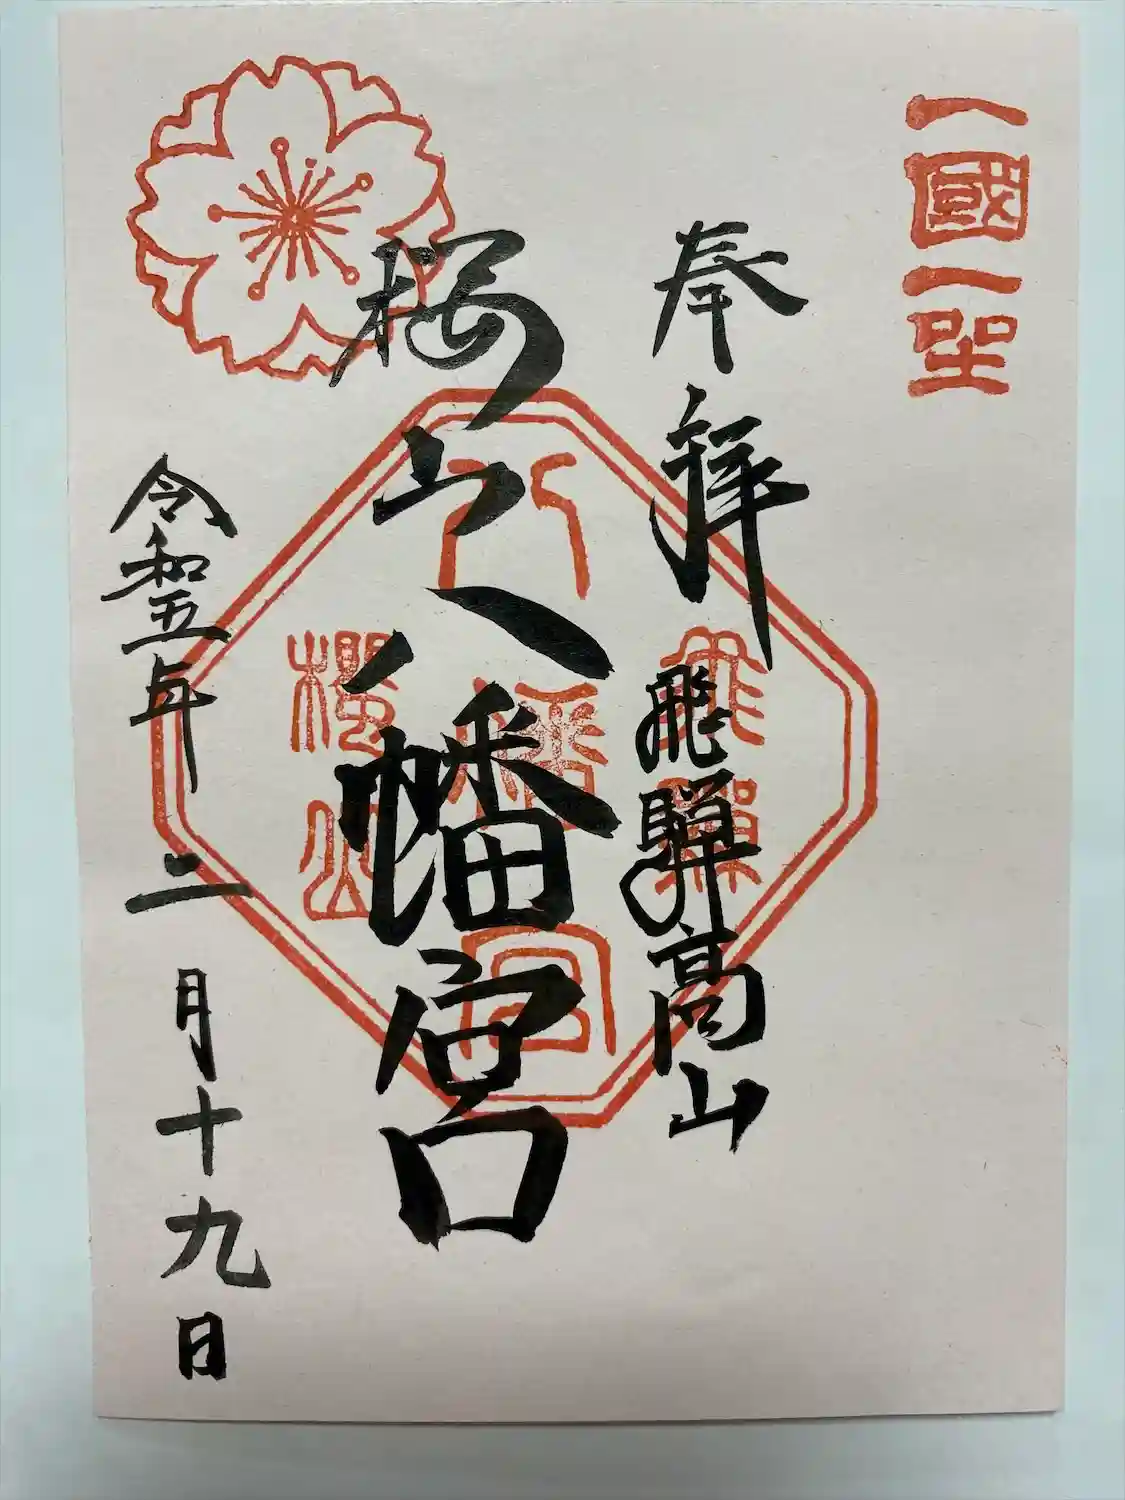 一國一
奉拜
飛騨高山
桜山八幡宮
八幡宮
飛騨
櫻山
令和五年二月十九日